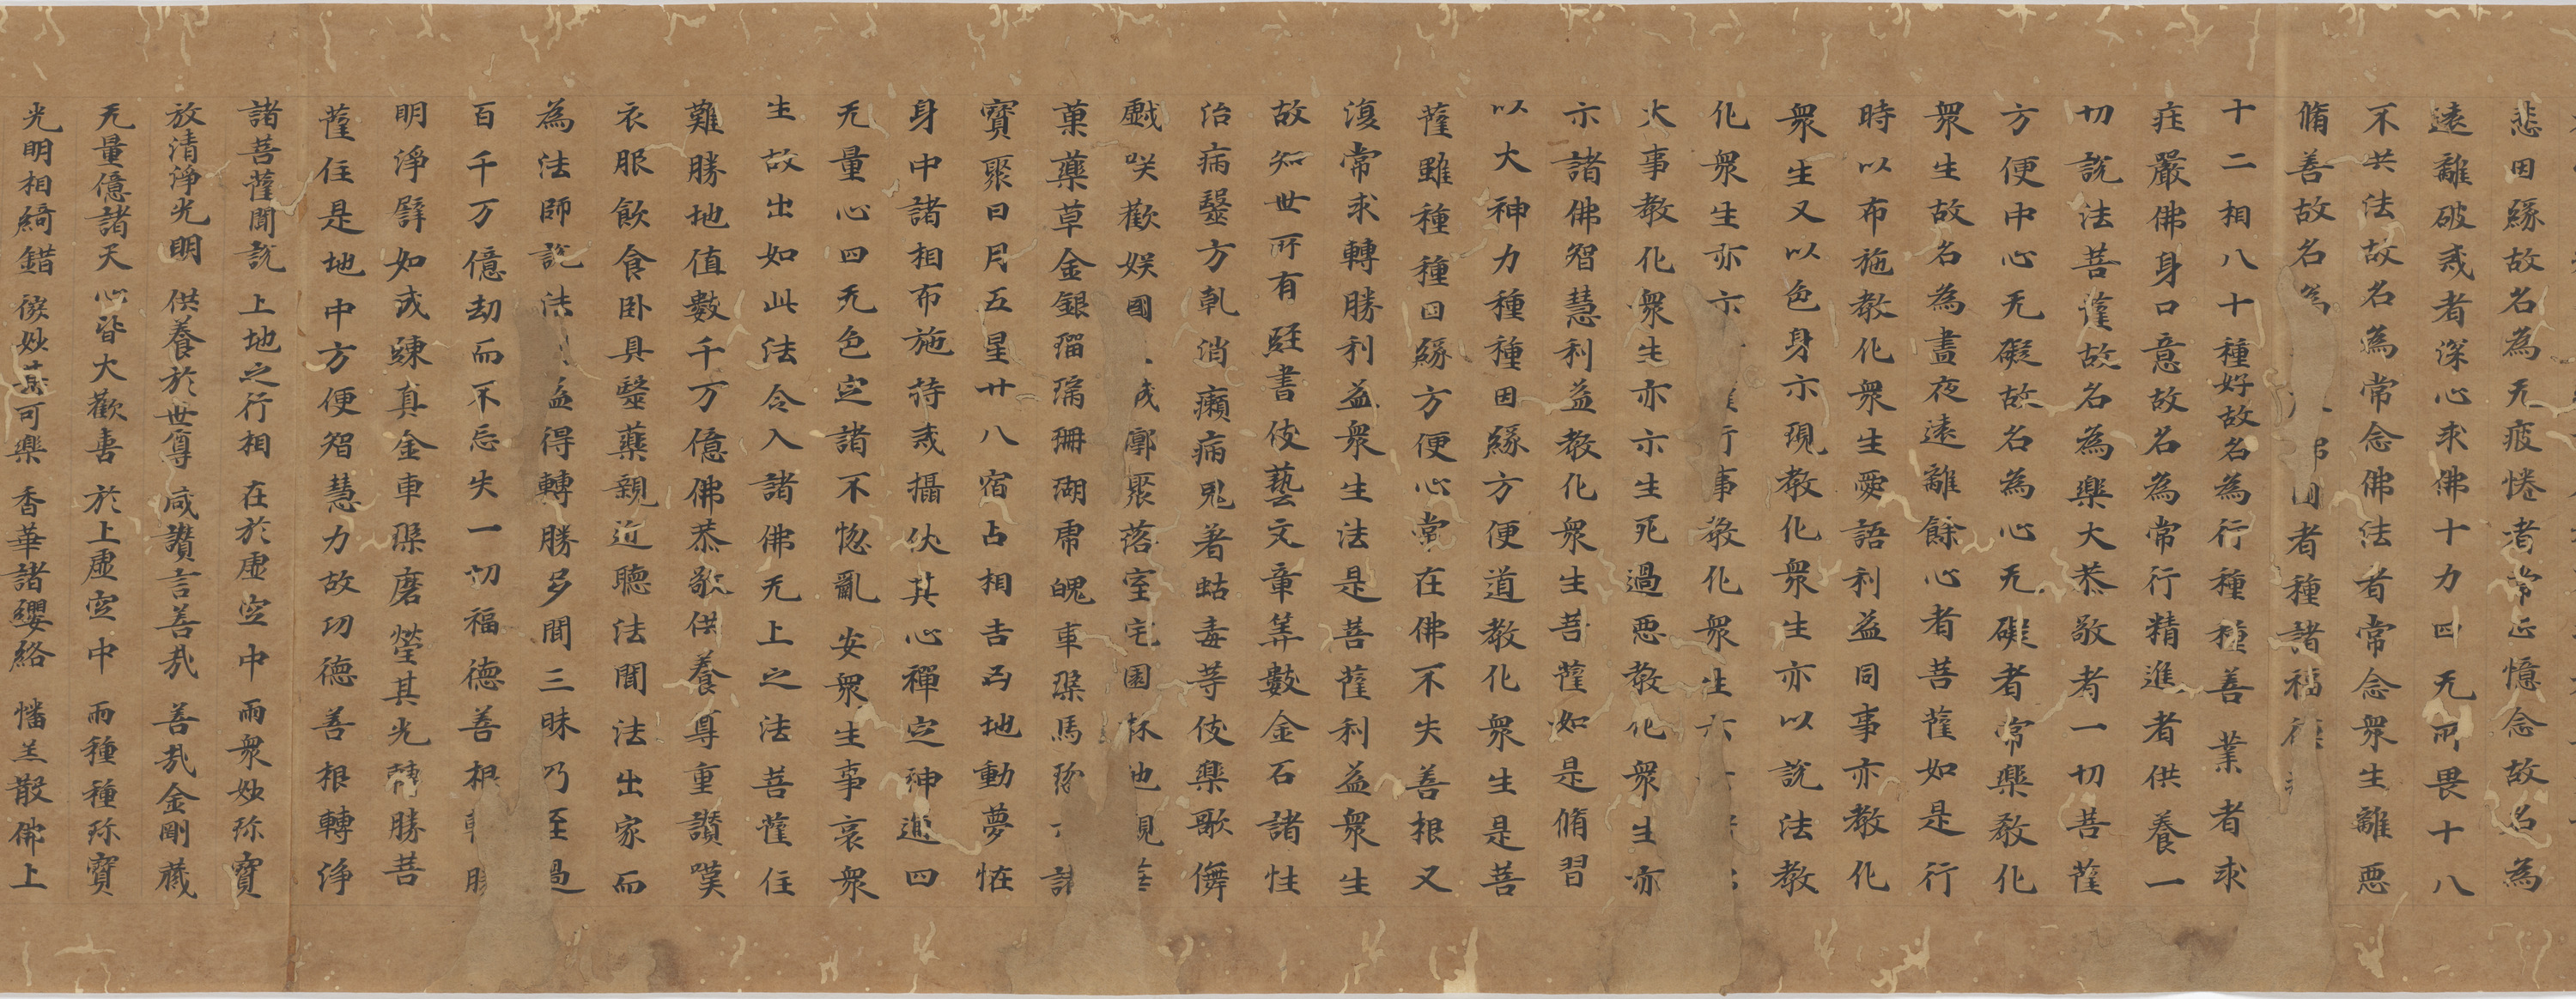 悲因緣故名為无疲惓者常正憶念故名為
遠離破戒者深心求佛十力四无所畏十八
不共法故名為常念佛法者常念衆生離惡
脩善故名為 者種諸福德
十二相八十種好故名為行種種善業者求
莊嚴佛身口意故名為常行精進者供養一
切說法菩薩故名為樂大恭敬者一切菩薩
方便中心无礙故名為心无礙者常樂教化
衆生故名為晝夜遠離餘心者菩薩如是行
時以布施教化衆生愛語利益同事亦教化
衆生又以色身示現教化衆生亦以說法教
化衆生亦示 行事教化衆生示
大事教化衆生亦示生死過惡教化衆生亦
示諸佛智慧利益教化衆生菩薩如是脩習
以大神力種種因緣方便道教化衆生是菩
薩雖種種因緣方便心常在佛不失善根又
復常求轉勝利益衆生法是菩薩利益衆生
故知世所有經書伎藝文章筭數金石諸性
治病毉方乹消癩病鬼著蛊毒等伎樂歌儛
戱咲歡娱國 成廓聚落室宅園林池觀華
菓藥草金銀瑠璃珊瑚虎魄車磲馬瑙 諸
寶聚日月五星廿八宿占相吉凶地動夢恠
身中諸相布施持戒攝伏其心禪定神通四
无量心四无色定諸不惚亂安衆生事哀衆
生故出如此法令入諸佛无上之法菩薩住
難勝地值數千万億佛恭敬供養尊重讚嘆
衣服飲食卧具毉藥親近聽法聞法出家而
為法師說法 益得轉勝多聞三昧乃至過
百千万億劫而不忘失一切福德善根轉勝
明淨譬如成鍊真金車磲磨瑩其光轉勝菩
薩住是地中方便智慧力故功德善根轉淨
諸菩薩聞說 上地之行相 在於虛空中 雨衆妙珎寶
放清淨光明 供養於世尊 咸讚言善㢤 善㢤金剛藏
无量億諸天 心皆大歡喜 於上虛空中 雨種種珎寶
光明相綺錯 微妙甚可樂 香華諸纓絡 幡盖散佛上